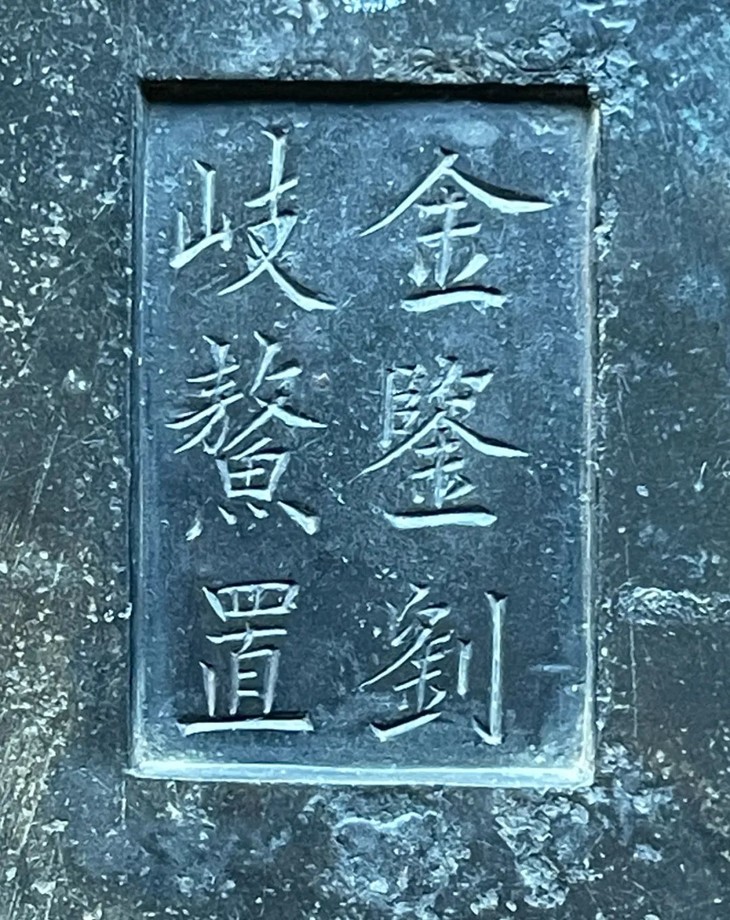 金鑒劉
岐鰲置